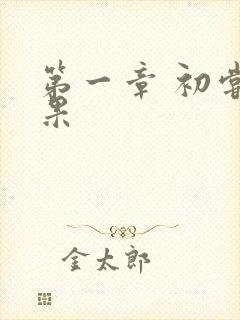 第一章 初尝
果
金太郎